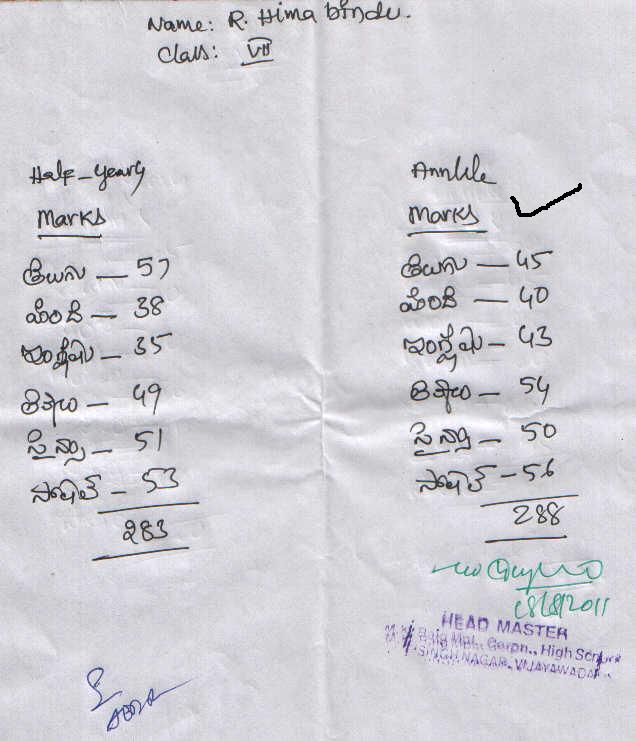 Name: R. Hima bindu.
Class: VII
Half-yearly
Marks
తెలుగు — 57
హిందీ — 38
ఇంగ్లీషు — 35
లెక్కలు — 49
సైన్సు — 51
సోషల్ — 53
283
Marks
తెలుగు — 45
హిందీ — 40
ఇంగ్లీషు — 43
లెక్కలు — 54
సైన్సు — 50
సోషల్ — 56
288
18/8/2011
HEAD MASTER
Mpl., Corpn., High School
SINGH NAGAR, VIJAYAWADA